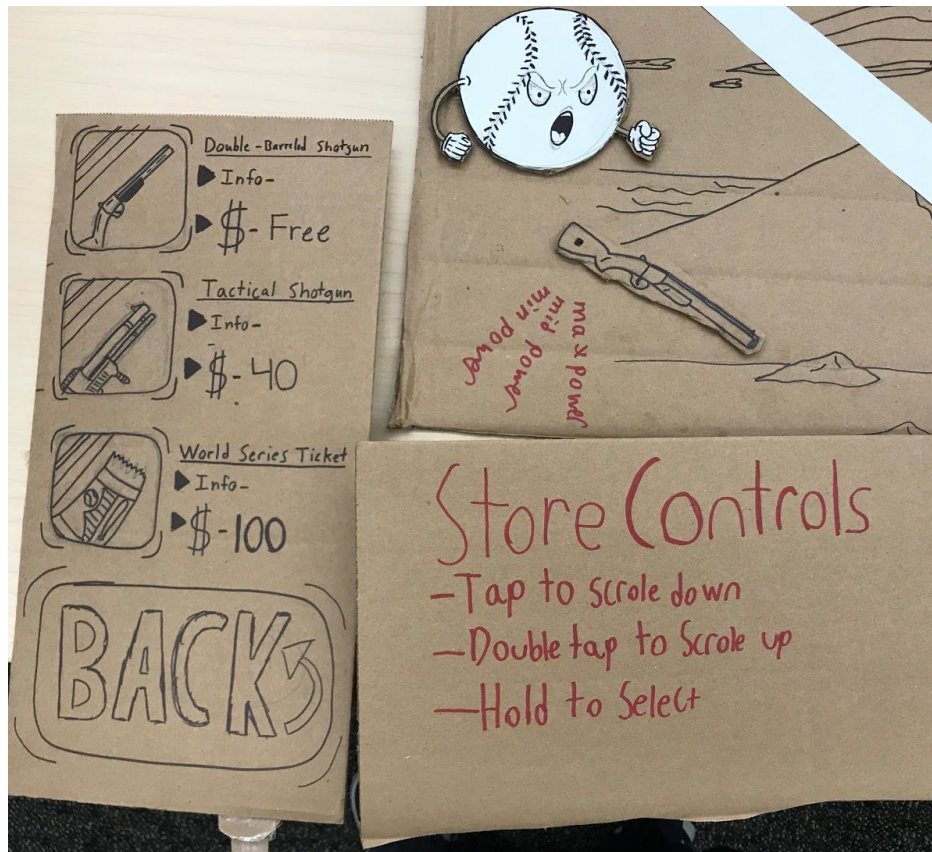 Double-Barreled Shotgun
Info-
$- Free
Tactical Shotgun
Info-
$- 40
World Series Ticket
Info-
$-100
BACK
min power
mid power
max power
Store Controls
-Tap to scrole down
-Double tap to Scrole up
-Hold to Select